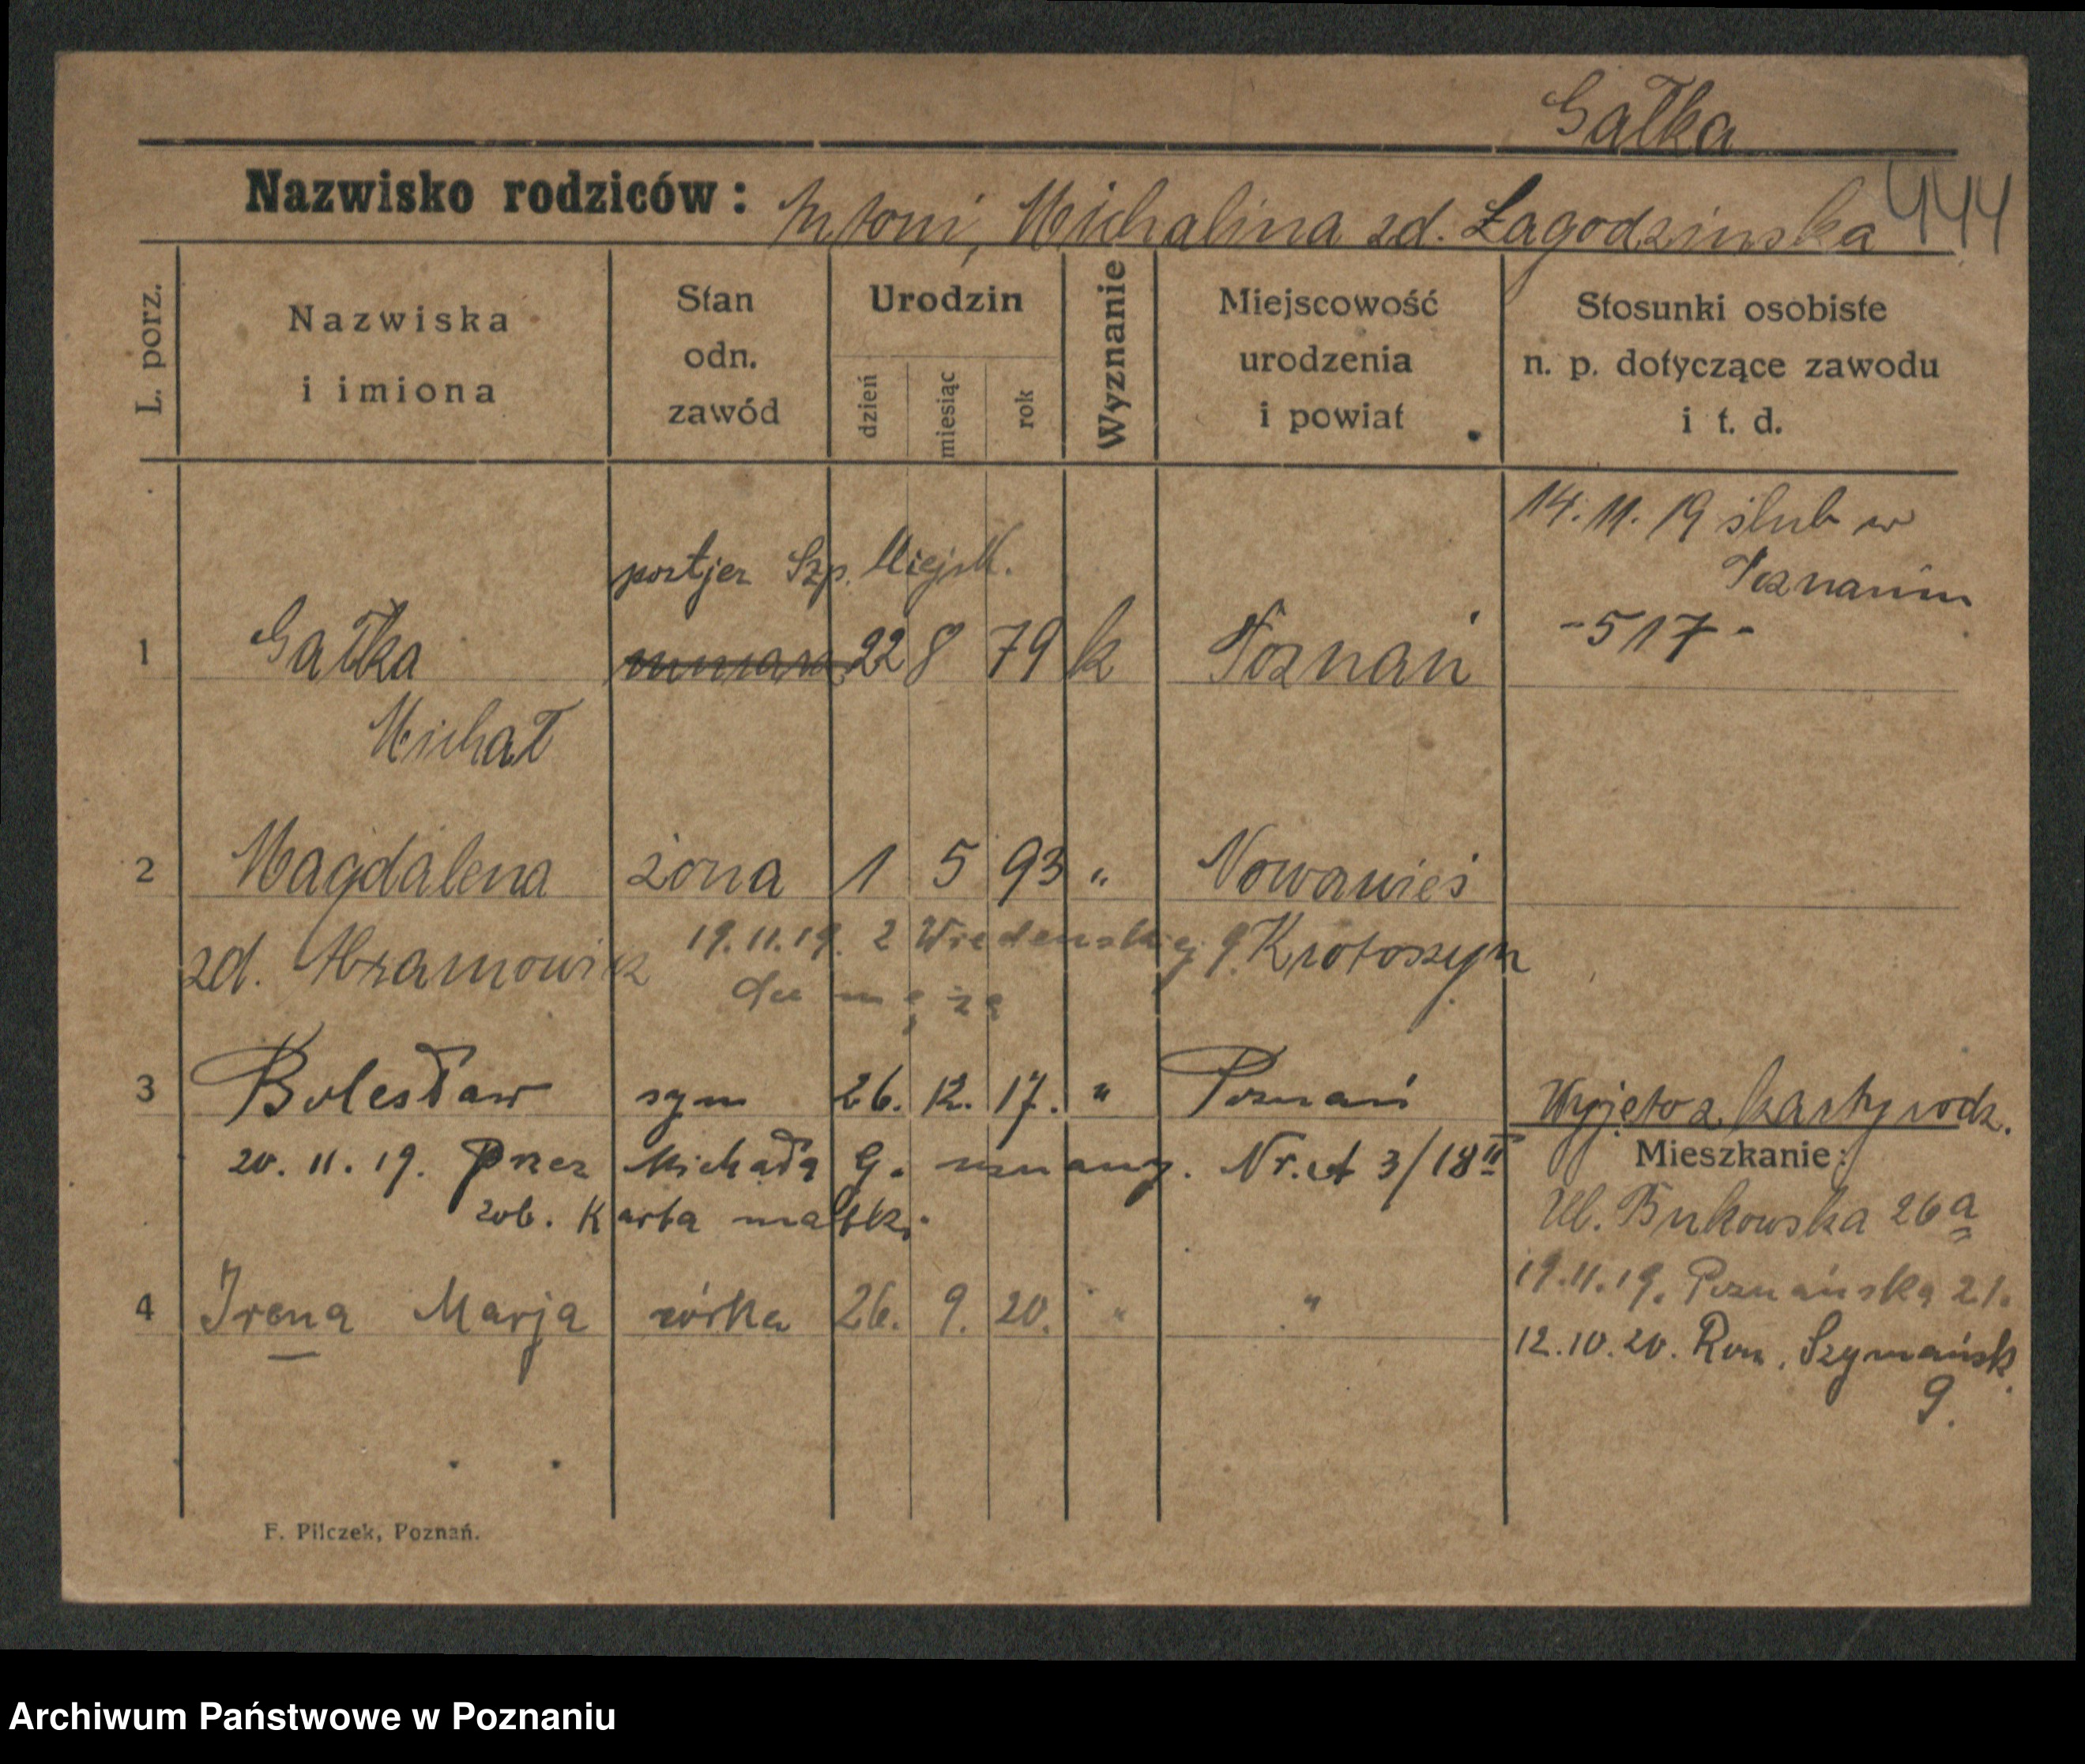 Gałka
Nazwisko rodziców: Antoni, Michalina zd. Łagodzinska 444
L. porz.
Nazwiska
i imiona
Stan
odn.
zawód
Urodzin
dzień
miesiąc
rok
Wyznanie
Miejscowość
urodzenia
i powiat
Stosunki osobiste
n. p. dotyczące zawodu
i t. d.
14. 11. 19 ślub w
Poznaniu
-517-
portjer Szp. Miejsk.
1 Gałka 22 8 79 k Poznań
Michał
2 Magdalena żona 1 5 93 " Nowawieś
zd. Abramowicz 19.11.19. z Wredenskiej 9. Krotoszyn
do męża
3 Bolesław syn 26. 12. 17. " Poznań Wyjęto z karty rodz.
20. 11. 19. Przez Michała G. uznany. Nr. A 3/18 II
zob. Karta matki.
Mieszkanie:
Ul. Bukowska 26a
19.11.19. Poznańska 21.
4 Irena Marja córka 26. 9. 20. " "
12.10.20. Rom. Szymańsk.
9.
F. Pilczek, Poznań.
Archiwum Państwowe w Poznaniu